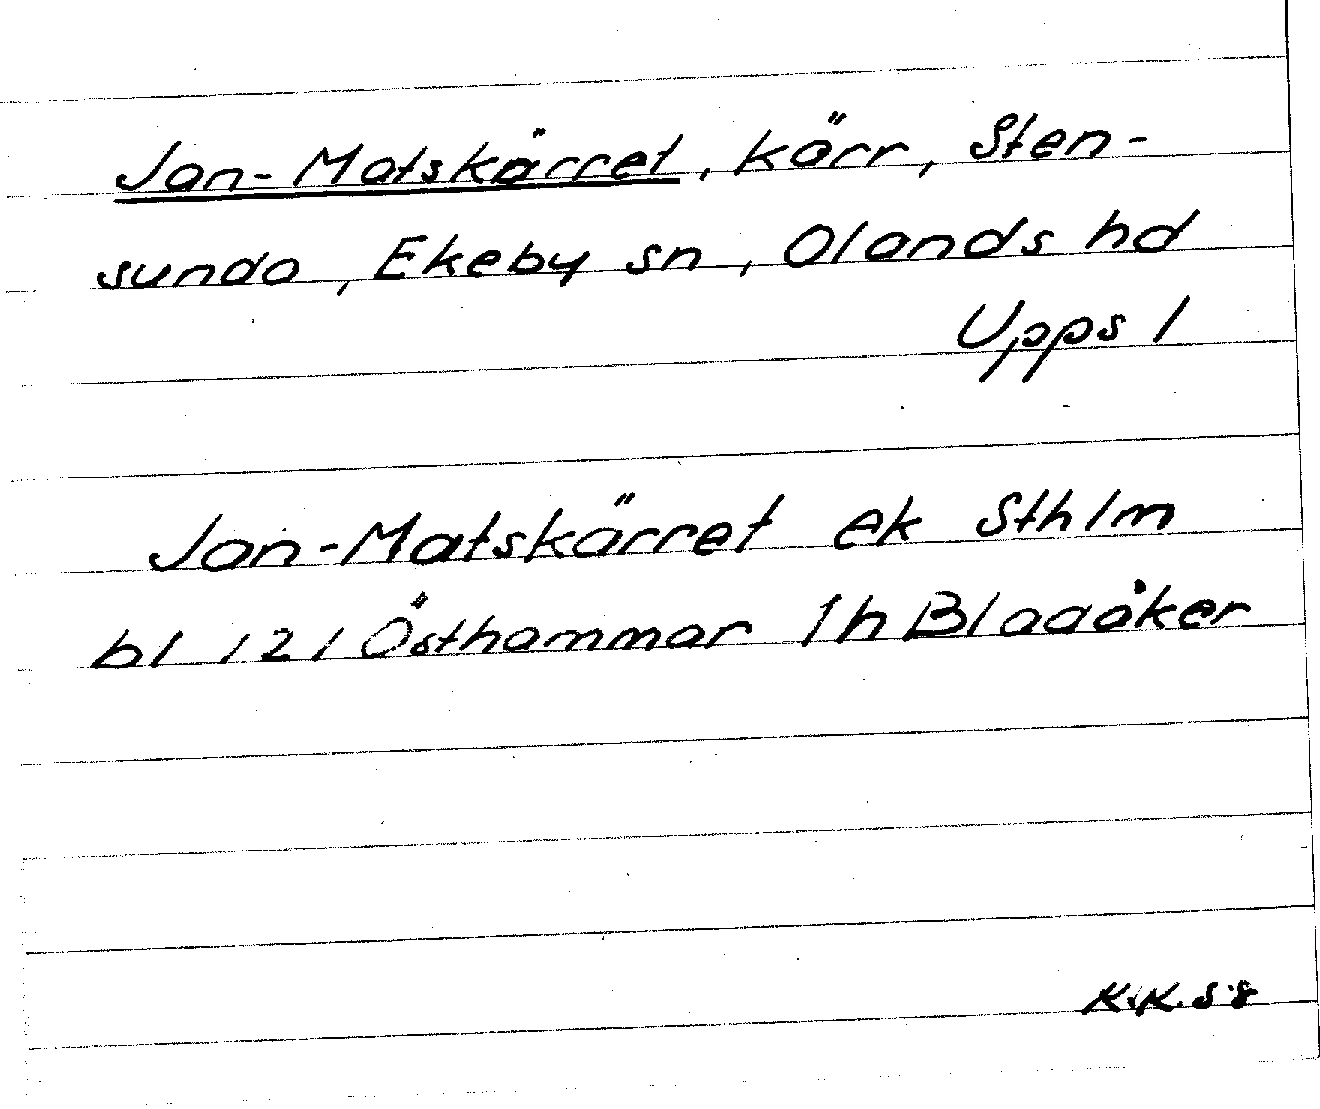 Jan-Matskärret, kärr, Sten-
sunda, Ekeby sn, Olands hd
Upps l
Jan-Matskärret ek Sthlm
bl 121 Östhammar Ih Blaaåker
K.K. 58